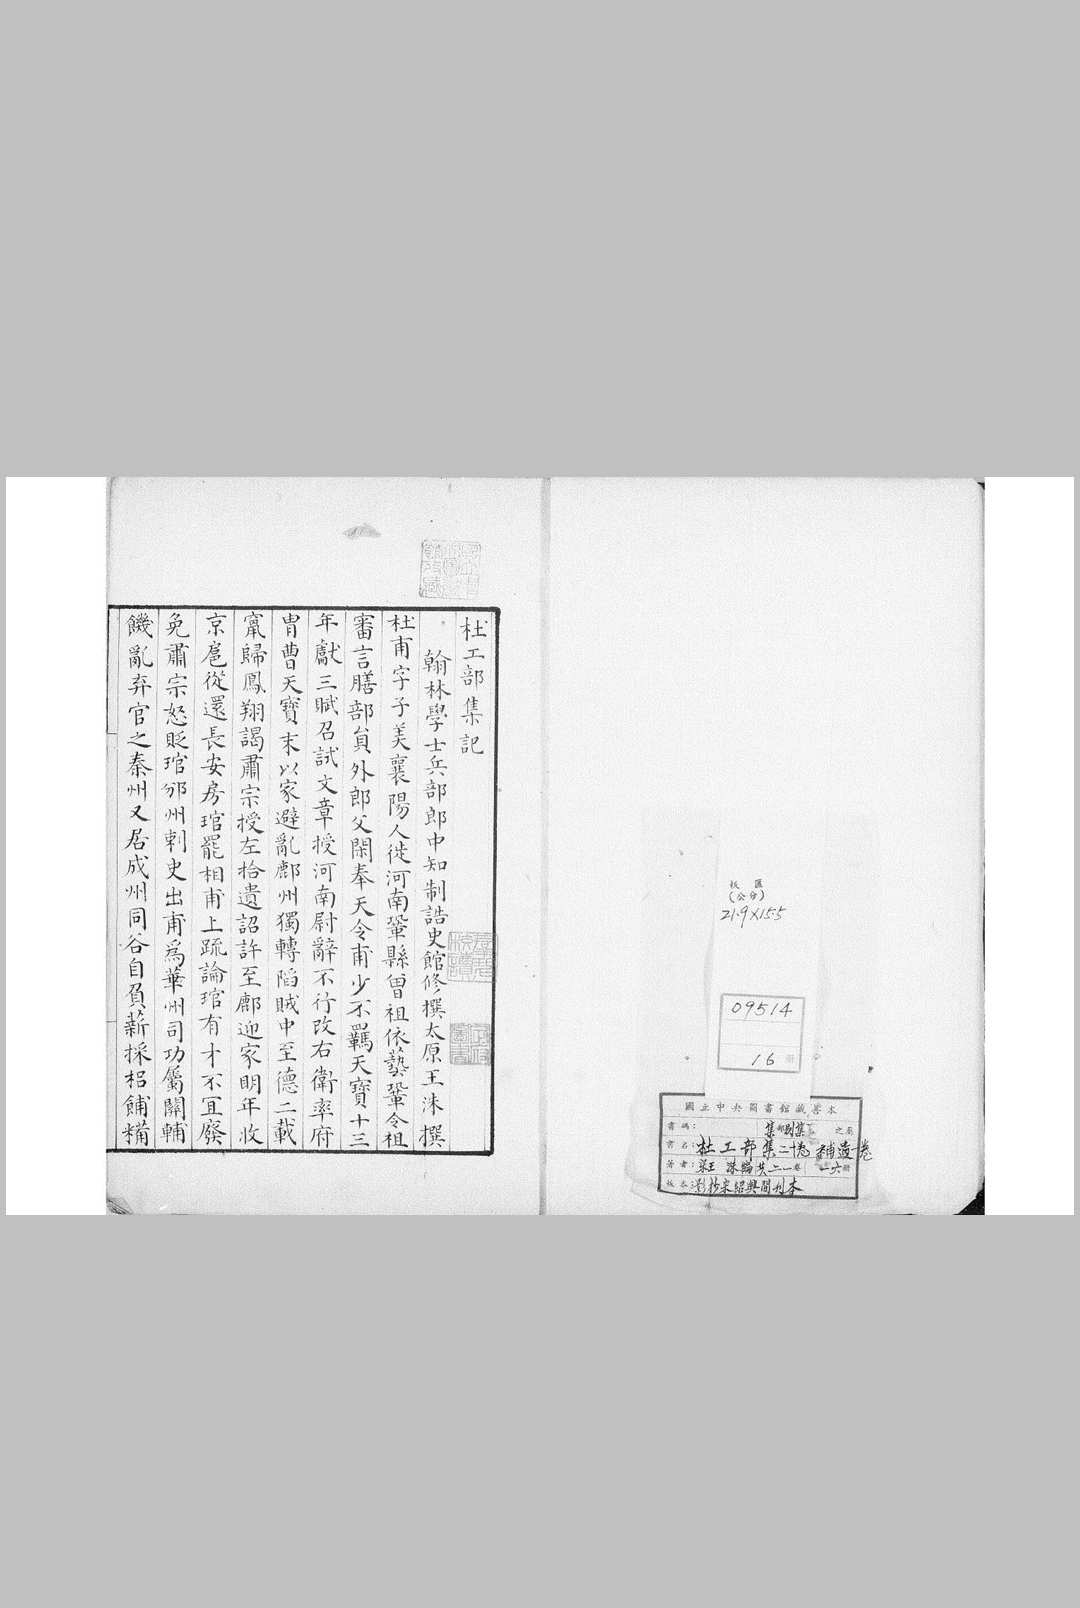 杜工部集記
翰林學士兵部郎中知制誥史館修撰太原王洙撰
杜甫字子美襄陽人徙河南鞏縣曾祖依藝鞏令祖
審言膳部員外郎父閑奉天令甫少不羈天寶十三
年獻三賦召試文章授河南尉辭不行改右衛率府
冑曹天寶末以家避亂鄜州獨轉陷賊中至德二載
竄歸鳳翔謁肅宗授左拾遺詔許至鄜迎家明年收
京扈從還長安房琯罷相甫上疏論琯有才不宜廢
免肅宗怒貶琯邠州刺史出甫爲華州司功屬關輔
饑亂弃官之秦州又居成州同谷自負薪採梠餔糒
板匡
(公分)
21.9×15.5
09514
16 冊
國立中央圖書館藏善本
書碼:集部別集 之屬
書名:杜工部集二十卷 補遺一卷
著者:宋王洙編 共二一卷 一六冊
板本:影抄宋紹興間刊本